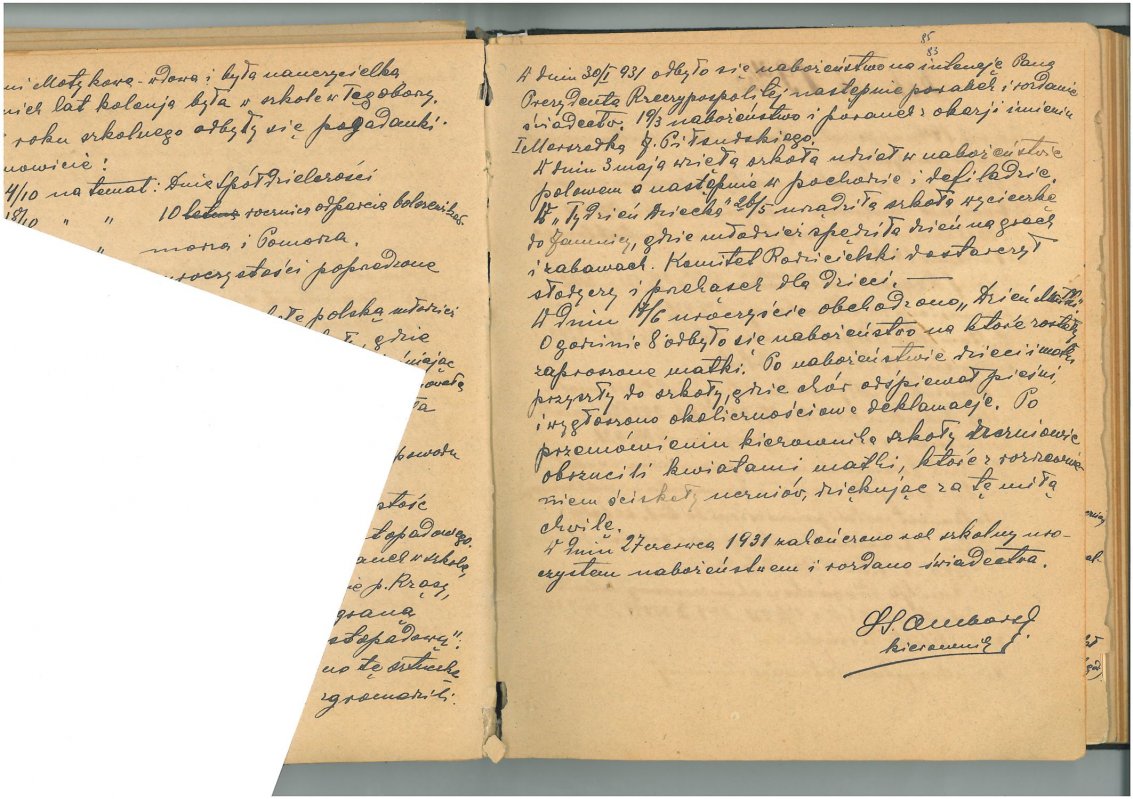 ni Motykowa - wdowa i była nauczycielką
nich lat koleją była w szkole w Tęgoborzy.
roku szkolnego odbyły się pogadanki.
nowicie:
4/10 na temat: Dnia Spółdzielczości
18/10 " " 10 letnia rocznica odparcia bolszewików.
" morza i Pomorza.
uroczystości poprzedzone
polską młodzież
gdzie
powodu
stość
topadowego.
anek w szkole,
ie p. Krasy,
graną
stopadową".
no tę sztuczkę
zgromadzili.
85
83
W dniu 30/I 931 odbyło się nabożeństwo na intencję Pana
Prezydenta Rzeczypospolitej następnie poranek i rozdanie
świadectw. 19/3 nabożeństwo i poranek z okazji imienin
I Marszałka J. Piłsudskiego.
W dniu 3 maja wzięła szkoła udział w nabożeństwie
polowem a następnie w pochodzie i defiladzie.
W „Tydzień Dziecka" 26/5 urządziła szkoła wycieczkę
do Jamnicy, gdzie młodzież spędziła dzień na grach
i zabawach. Komitet Rodzicielski dostarczył
słodyczy i przekąsek dla dzieci.
W dniu 14/6 uroczyście obchodzono „Dzień Matki".
O godzinie 8 odbyło się nabożeństwo na które zostały
zaproszone matki. Po nabożeństwie dzieci i matki
przyszły do szkoły, gdzie chór odśpiewał pieśni,
i wygłoszono okolicznościowe deklamacje. Po
przemówieniu kierownika szkoły uczniowie
obrzucili kwiatami matki, które z rozrzewnie-
niem ściskały uczniów, dziękując za tę miłą
chwilę.
W dniu 27 czerwca 1931 zakończono rok szkolny uro-
czystem nabożeństwem i rozdano świadectwa.
kierownik